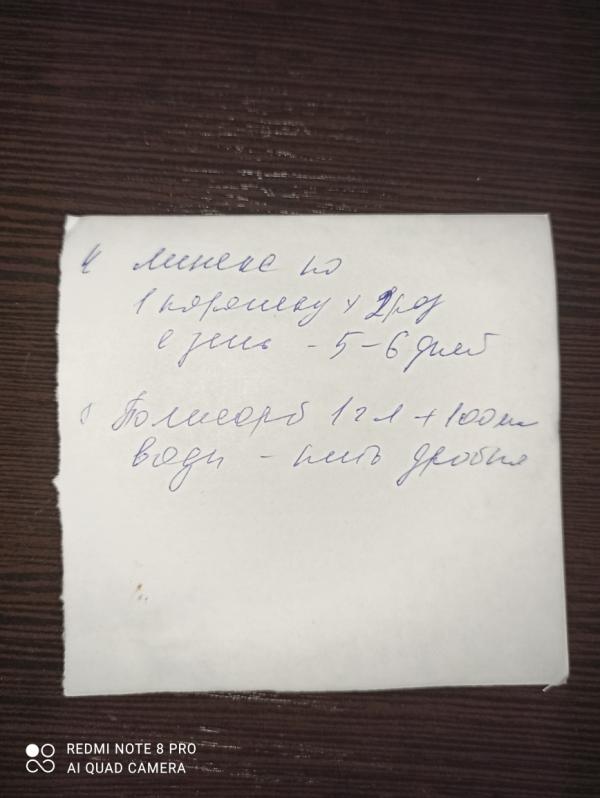 4 Линекс по
1 порошку х 2 раз
в день - 5-6 дней
5 Полисорб 1 г л + 100 мл
воды - пить дробно
REDMI NOTE 8 PRO
AI QUAD CAMERA